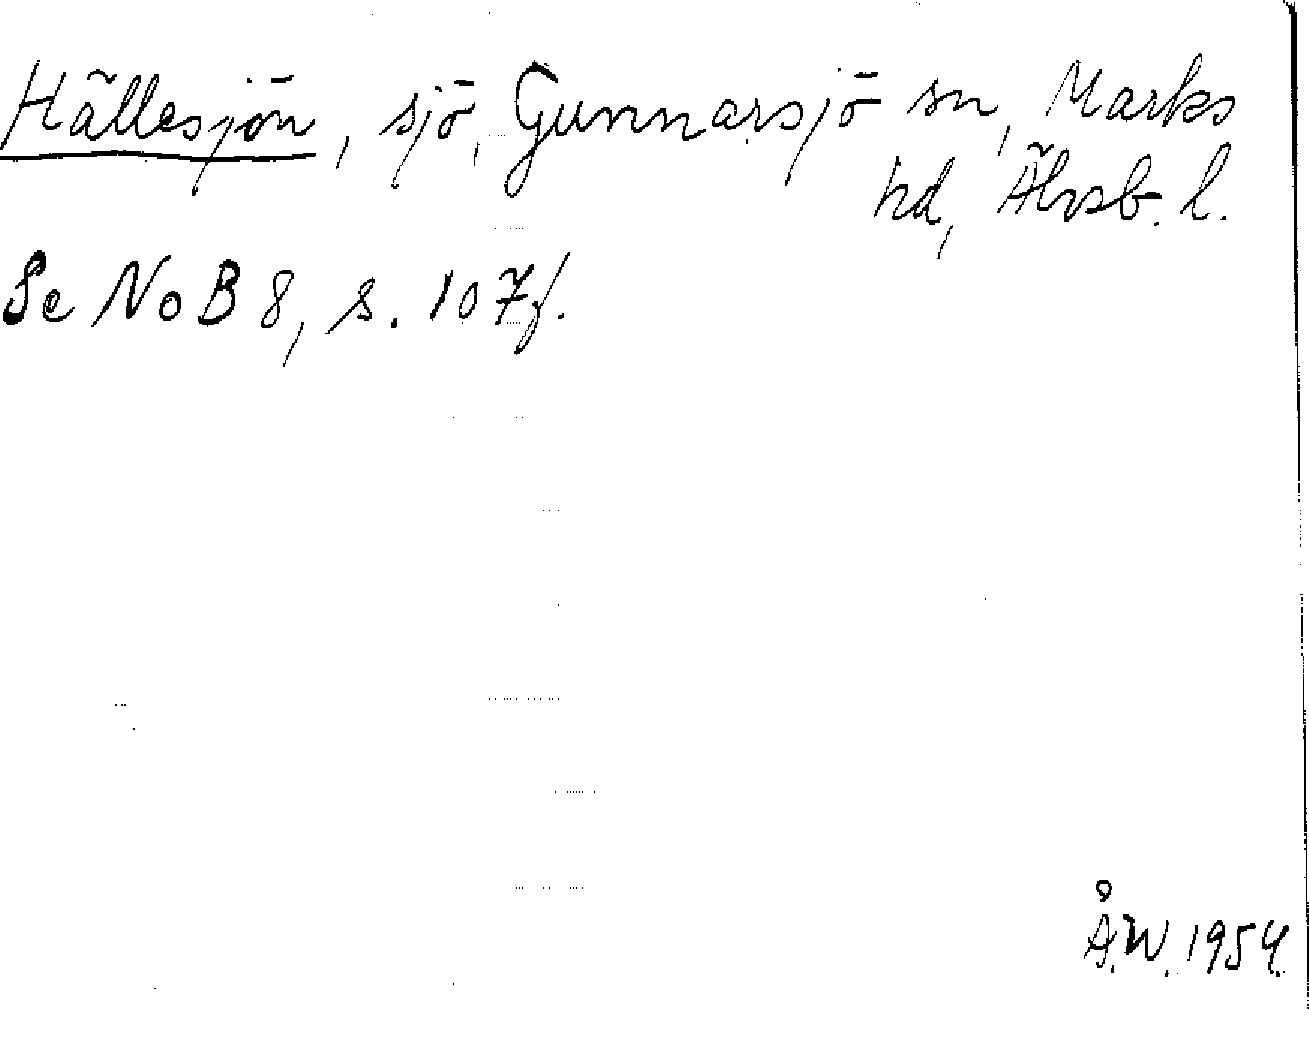 Hällesjön, sjö, Gunnarsjö sn, Marks
hd, Älvsb. l.
Se NoB 8, s. 107f.
Å.W. 1954.